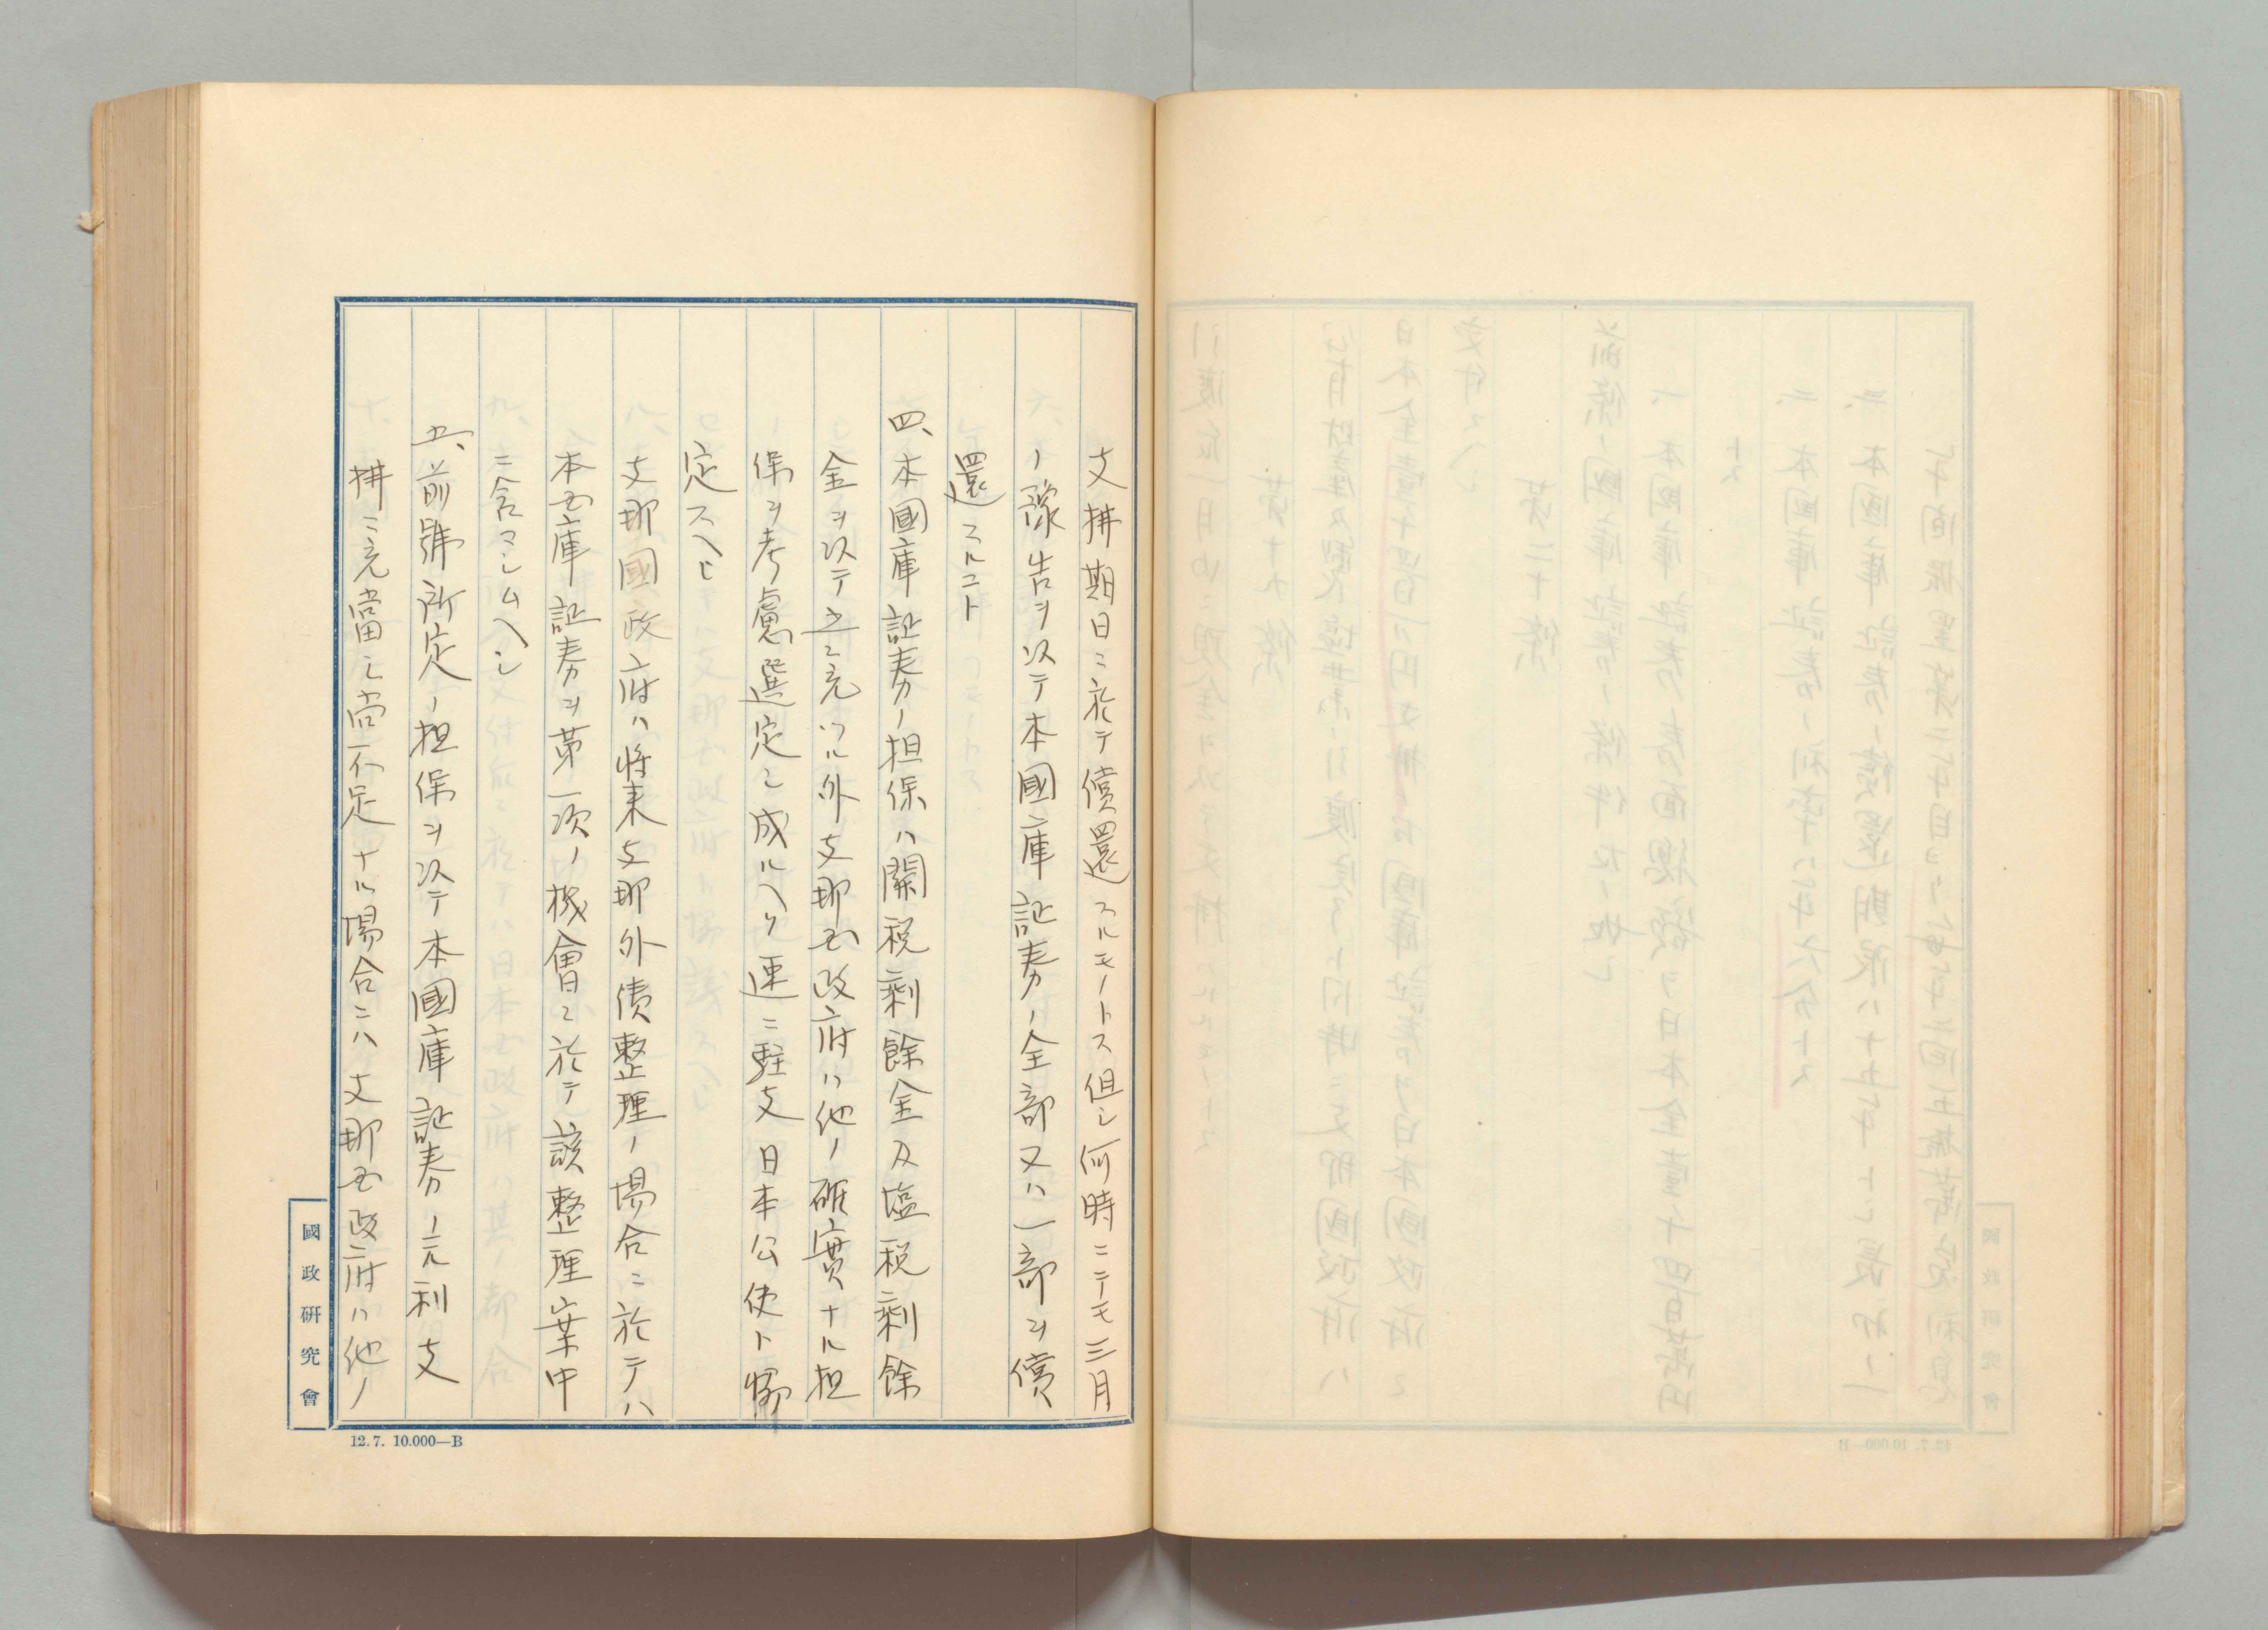 支拂期日ニ於テ償還スルモノトス但シ何時ニテモ三月
ノ豫告ヲ以テ本國庫証券ノ全部又ハ一部ヲ償
還スルコト
四、本國庫証券ノ担保ハ關税剰餘金及塩税剰餘
金ヲ以テ之ニ充ツル外支那国政府ハ他ノ確實ナル担
保ヲ考慮選定シ成ルヘク速ニ駐支日本公使ト協
定スヘシ
支那國政府ハ將来支那外債整理ノ場合ニ於テハ
本国庫証券ヲ第一次ノ機會ニ於テ該整理案中
ニ含マシムヘシ
五、前號所定ノ担保ヲ以テ本國庫証券ノ元利支
拂ニ充當シ尚不足ナル場合ニハ支那国政府ハ他ノ
國政研究會
12.7. 10.000—B